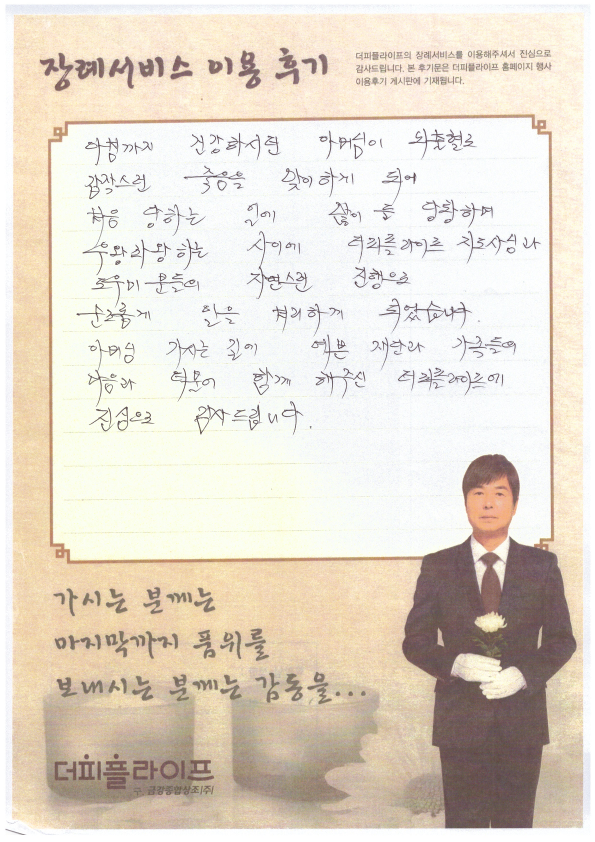 장례서비스 이용 후기
더피플라이프의 장례서비스를 이용해주셔서 진심으로
감사드립니다. 본 후기문은 더피플라이프 홈페이지 행사
이용후기 게시판에 기재됩니다.
아침까지 건강하시던 아버님이 뇌출혈로
갑작스런 죽음을 맞이하게 되어
처음 당하는 일에 많이들 당황하며
우왕좌왕하는 사이에 더피플라이프 지도사님과
도우미분들의 자연스런 진행으로
순조롭게 일을 처리하게 되었습니다.
아버님 가시는 길에 예쁜 제단과 가족들의
마음과 함께 해주신 더피플라이프에
진심으로 감사드립니다.
가시는 분께는
마지막까지 품위를
보내시는 분께는 감동을...
더피플라이프
구. 금강종합상조(주)